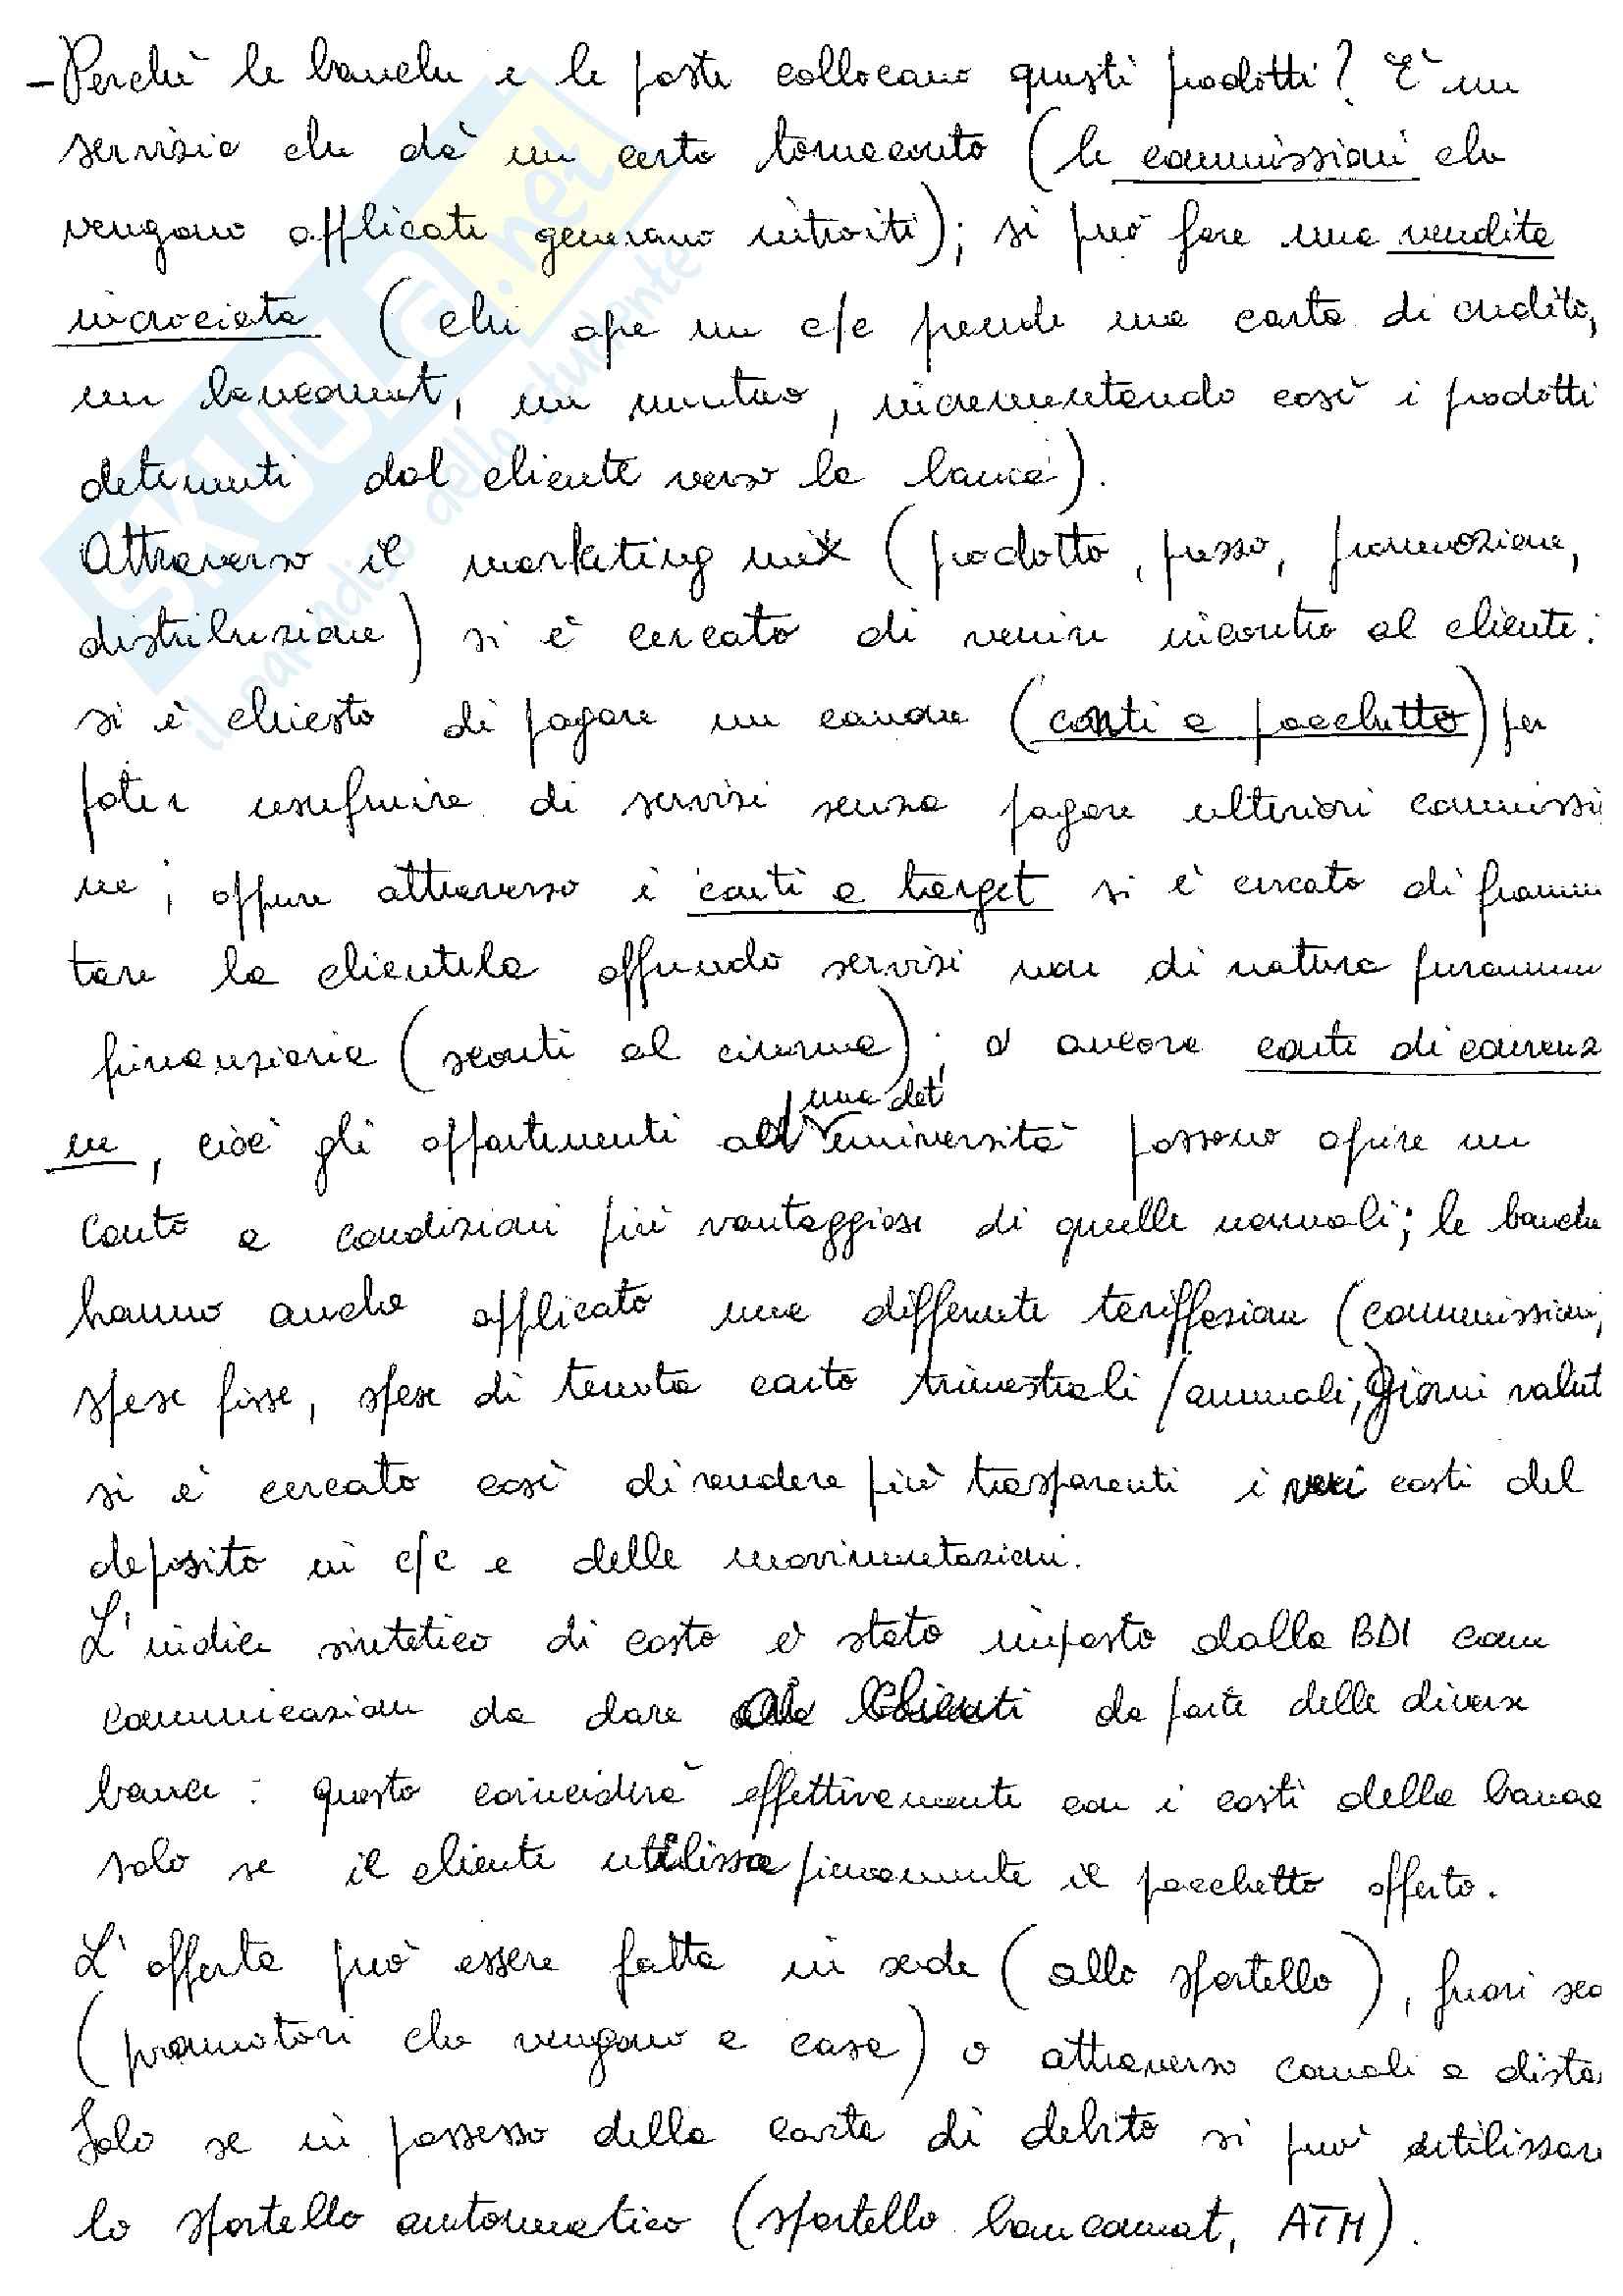 - Perchè le banche e le poste collocano questi prodotti? È un
servizio che dà un certo tornaconto (le commissioni che
vengono applicate generano introiti); si può fare una vendita
incrociata (chi apre un c/c prende una carta di credito,
un bancomat, un mutuo, incrementando così i prodotti
detenuti dal cliente verso la banca).
Attraverso il marketing mix (prodotto, prezzo, promozione,
distribuzione) si è cercato di venire incontro al cliente:
si è chiesto di pagare un canone (conti a pacchetto) per
poter usufruire di servizi senza pagare ulteriori commissi
ne; oppure attraverso i conti a target si è cercato di framm
tare la clientela offrendo servizi non di natura puramen
finanziaria (sconti al cinema); o ancora conti di convenz
ne, cioè gli appartenenti ad una det università possono aprire un
conto a condizioni più vantaggiose di quelle normali; le banche
hanno anche applicato una differente tariffazione (commissioni,
spese fisse, spese di tenuta conto trimestrali/annuali, giorni valut
si è cercato così di rendere più trasparenti i veri costi del
deposito in c/c e delle movimentazioni.
L'indice sintetico di costo è stato imposto dalla BDI come
comunicazione da dare ai clienti da parte delle diverse
banche: questo coinciderà effettivamente con i costi della banca
solo se il cliente utilizza pienamente il pacchetto offerto.
L'offerta può essere fatta in sede (allo sportello), fuori sed
(promotori che vengono a casa) o attraverso canali a distan
Solo se in possesso della carta di debito si può utilizzare
lo sportello automatico (sportello bancomat, ATM).
SKUOLA.net
il paradiso dello studente